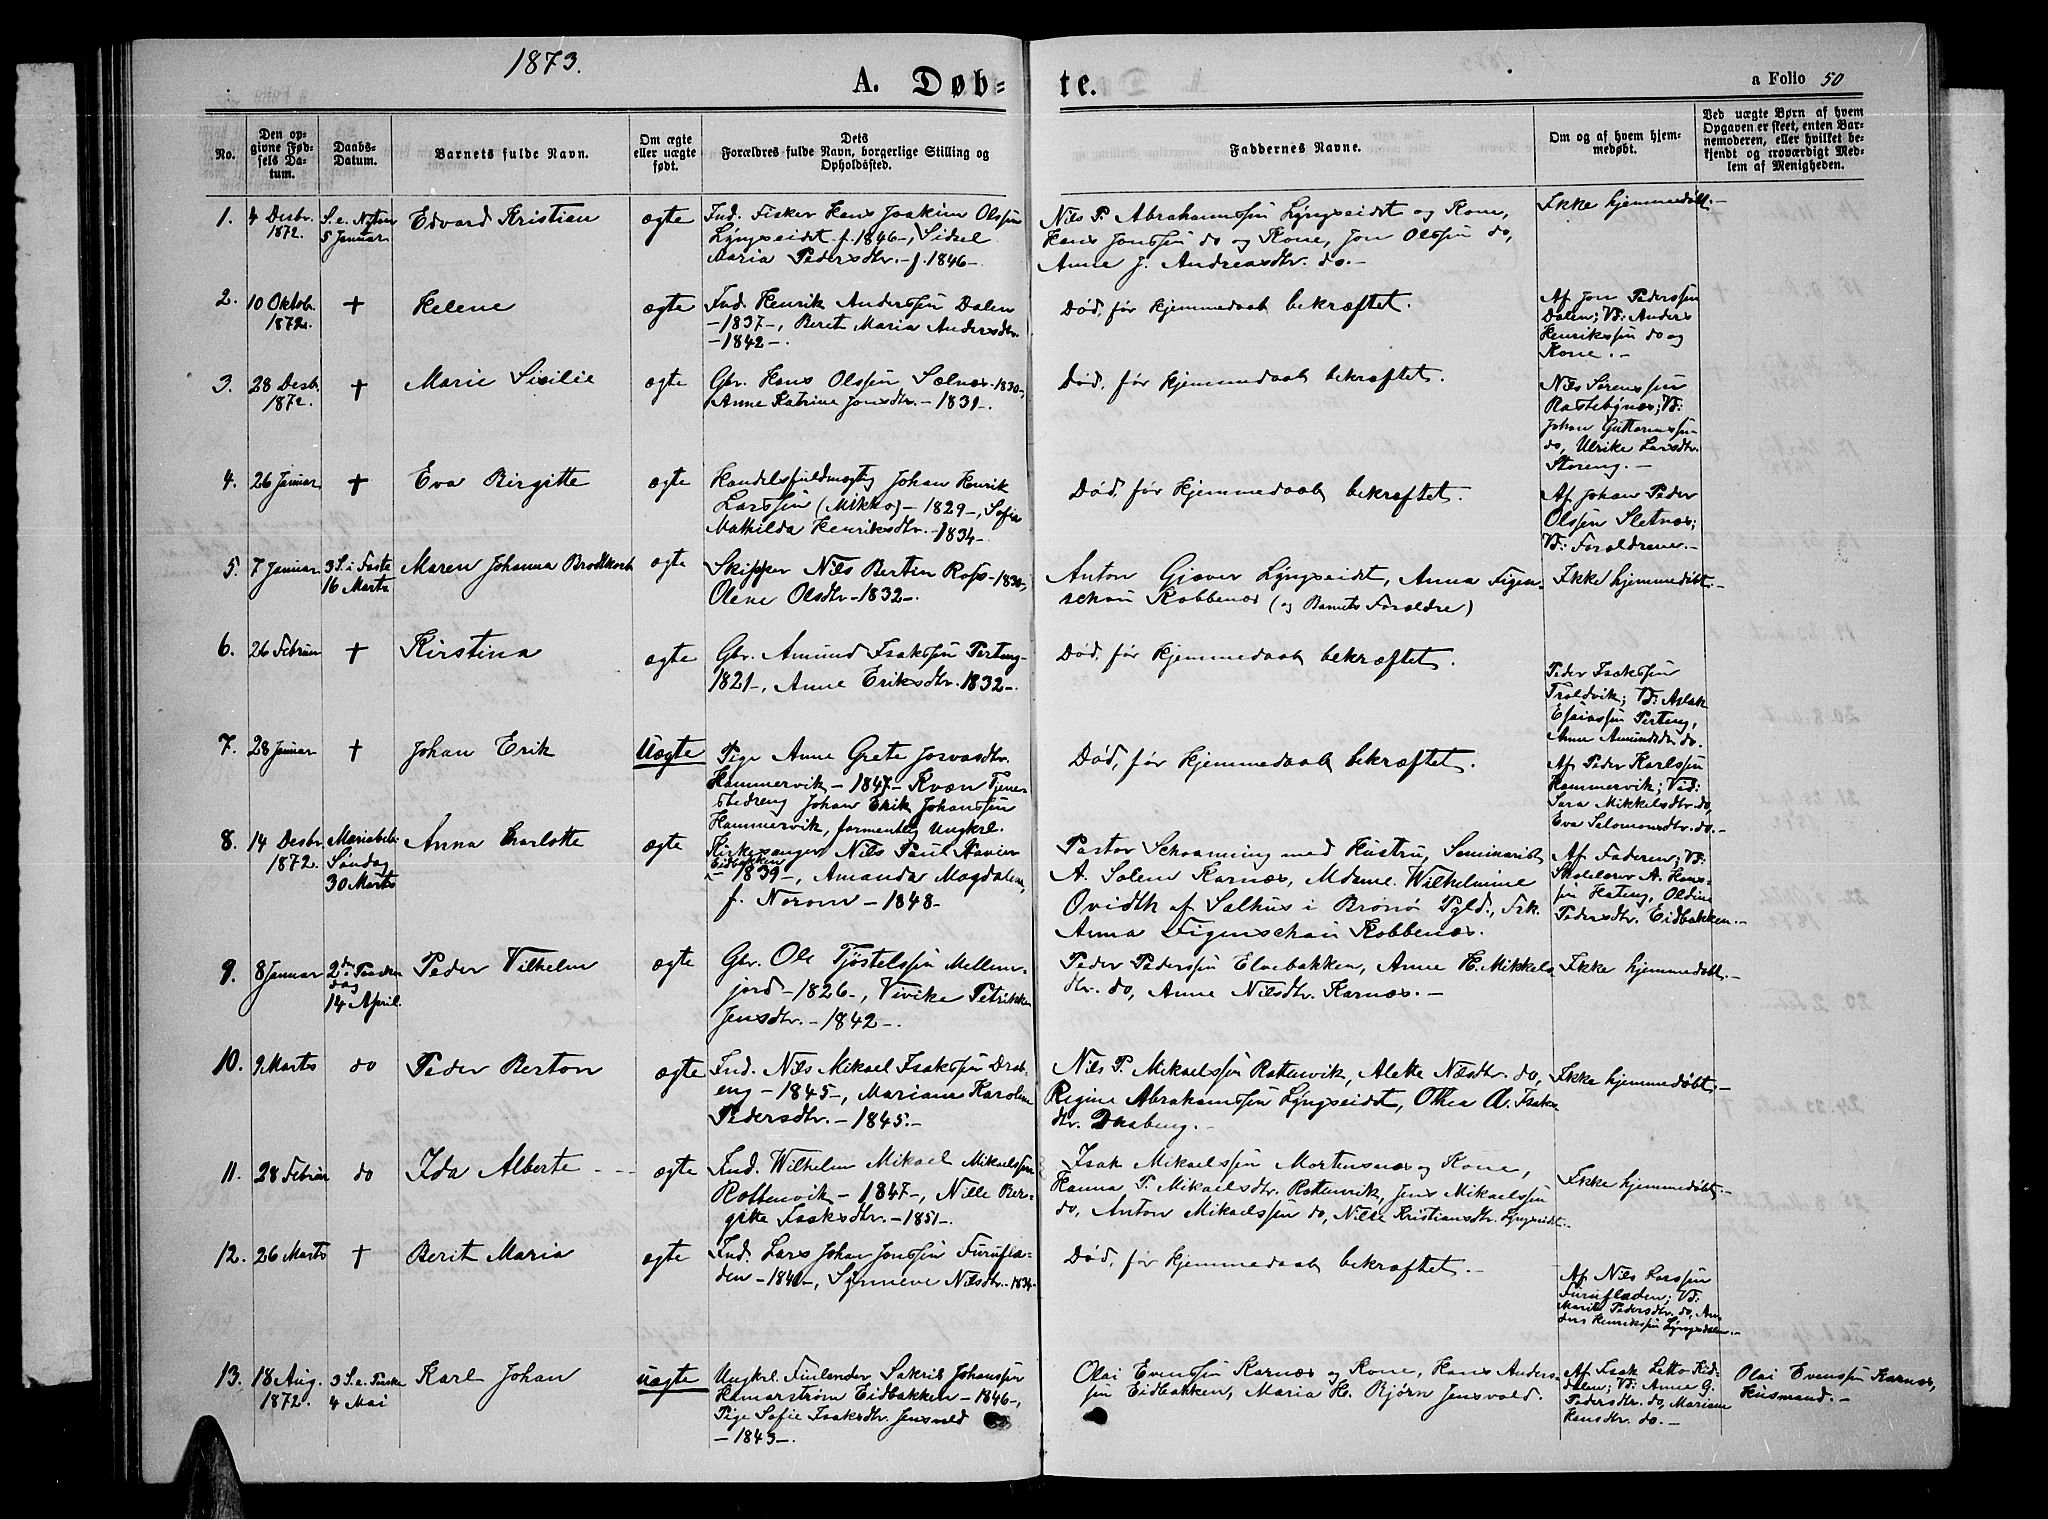 1873.
A. Døb-
te.
a Folio 50
No.
Den op-
givne Fød-
sels Da-
tum.
Daabs-
Datum.
Barnets fulde Navn.
Om ægte
eller uægte
født.
Dets
Forældres fulde Navn, borgerlige Stilling og
Opholdssted.
Faddernes Navne.
Om og af hvem hjem-
medøbt.
Ved uægte Børn af hvem
Opgaven er skeet, enten Bar-
nemoderen, eller hvilket be-
kjendt og troværdigt Med-
lem af Menigheden.
1.
4 Desbr.
1872.
S. e. Nytår
5 Januar
Edvard Kristian
ægte
Ind. Fisker Hans Joakim Olssøn
Lyngseidet f. 1846-, Sidsel
Maria Pedersdtr. - f. 1846-
Nils P. Abrahamssøn Lyngseidet og Kone,
Hans Jonssøn do og Kone, Jon Olssøn do,
Anne J. Andreasdtr. do.-
Ikke hjemmedøbt.-
2.
10 Oktob.
1872.
+
Helene
ægte
Ind. Henrik Anderssøn Dalen
-1837-, Berit Maria Andersdtr.
-1842-.
Død, før hjemmedaab bekræftet.
Af Jon Pederssøn
Dalen; Vd: Anders
Henrikssøn do og
Kone.-
3.
28 Desbr.
1872.
+
Marie Sisilie
ægte
Gbr. Hans Olssøn Sælnæs-1830-,
Anne Katrine Jonsdtr.-1831-.
Død, før hjemmedaab bekræftet.
Nils Sørenssøn
Rastebynæs; Vd:
Johan Guttormssøn
do, Ulrike Larsdtr.
Storeng.-
4.
26 Januar
+
Eva Birgitte
ægte
Handelsfuldmægtig Johan Henrik
Larssøn (Mikko)-1829-, Sofie
Mathilda Henriksdtr.-1834-
Død, før hjemmedaab bekræftet.
Af Johan Peder
Olssøn Sletnæs;
Vd: Forældrene.-
5.
7 Januar
3 S. i Faste
16 Marts
Maren Johanna Brodtkorb
ægte
Skipper Nils Bertin Ross-1830-,
Olene Olsdtr-1832-.
Anton Giæver Lyngseidet, Anna Figen-
schou Kobbenæs (og Barnets Forældre)
Ikke hjemmedøbt.-
6.
26 Februar
+
Kirstina
ægte
Gbr. Amund Isakssøn Perteng-
1821-, Anne Eriksdtr. 1832-.
Død, før hjemmedaab bekræftet.
Peder Isakssøn
Troldvik; Vd: Aslak
Esaiassøn Perteng,
Anne Amundsdtr. do.
7.
28 Januar
+
Johan Erik
Uægte
Pige Anne Grete Josvasdtr.
Hammervik-1847-Kvæn Tjene-
stedreng Johan Erik Johanssøn
Hammervik, formentlig Ungkrl.
Død, før hjemmedaab bekræftet.
Af Peder Karlssøn
Hammervik; Vid:
Sara Mikkelsdtr. do,
Eva Salomonsdtr. do.-
8.
14 Desbr.
1872.
Mariabeb.
Søndag
30 Marts
Anna Charlotte
ægte
Kirkesanger Nils Paul Xavier
Eidbakken
-1839-, Amanda Magdalena,
f. Norum-1848-
Pastor Schoanning med Hustru, Seminarist
A. Solem Karnæs, Mdame. Wilhelmine
Qvidth af Salhus i Brønø Pgld., Frk.
Anna Figenschou Kobbenæs.
Af Faderen; Vd:
Skolelærer A. Hans-
søn Hateng, Oldine
Pedersdtr. Eidbakken.-
9.
8 Januar
2den Paaske-
dag
14 April.
Peder Vilhelm
ægte
Gbr. Ole Tjøstelssøn Mellem-
jord-1826-, Vivike Petrikke
Jensdtr.-1842-.
Peder Pederssøn Elvebakken, Anne H. Mikkels-
dtr. do, Anne Nilsdtr. Karnæs.-
Ikke hjemmedøbt.-
10.
9 Marts
do
Peder Berton
ægte
Ind. Nils Mikael Isakssøn Drab-
eng-1845-, Mariane Karoline
Pedersdtr.-1845.-
Nils P. Mikaelssøn Rottenvik, Alette Nilsdtr. do,
Regine Abrahamssøn Lyngseidet, Othea A. Isaks-
dtr. Drabeng.-
Ikke hjemmedøbt.-
11.
28 Februar
do
Ida Alberte
ægte
Ind. Wilhelm Mikael Mikaelssøn
Rottenvik-1847-, Nille Ber-
gitte Isaksdtr.-1851-.
Isak Mikaelssøn Mortensnæs og Kone,
Hanna P. Mikaelsdtr. Rottenvik, Jens Mikaelssøn
do, Anton Mikaelssøn do, Nille Kristiansdtr. Lyngseidet.
Ikke hjemmedøbt.-
12.
26 Marts
+
Berit Maria
ægte
Ind. Lars Johan Jonssøn Furufla-
den-1840-, Synneve Nilsdtr.-1834-
Død, før hjemmedaab bekræftet.-
Af Nils Larssøn
Furufladen; Vd:
Marit Pedersdtr. do, An-
ders Henrikssøn Lyngsdalen.-
13.
18 Aug.
1872.
3 S. e. Paaske
4 Mai
Karl Johan
uægte
Ungkrl. Finlænder Sakris Johanssøn
Hamarstrøm Eidbakken-1846-,
Pige Sofie Isaksdtr. Jensvold
-1843-.
Olai Evenssøn Karnæs og Kone, Hans Anders-
søn Eidbakken, Maria H. Bjørn Jensvold.
Af Isak Letto Kid-
dalen; Vd: Anne G.
Pedersdtr. do, Mariane
Hansdtr. do.-
Olai Evenssøn Karnæs,
Husmand.-